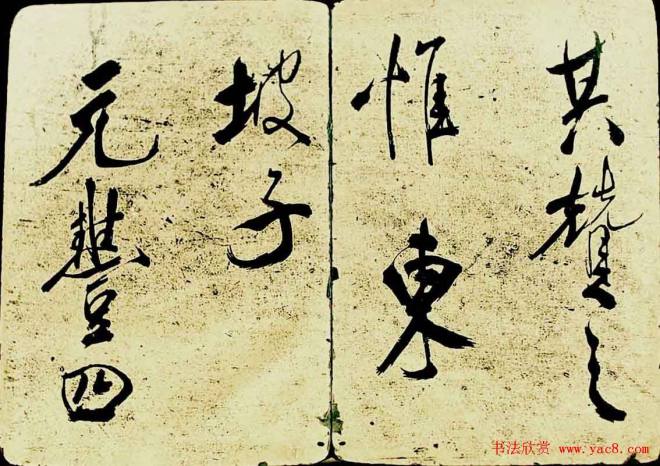 其贊之
惟東
坡子
元豐四
书法欣赏 www.yac8.com